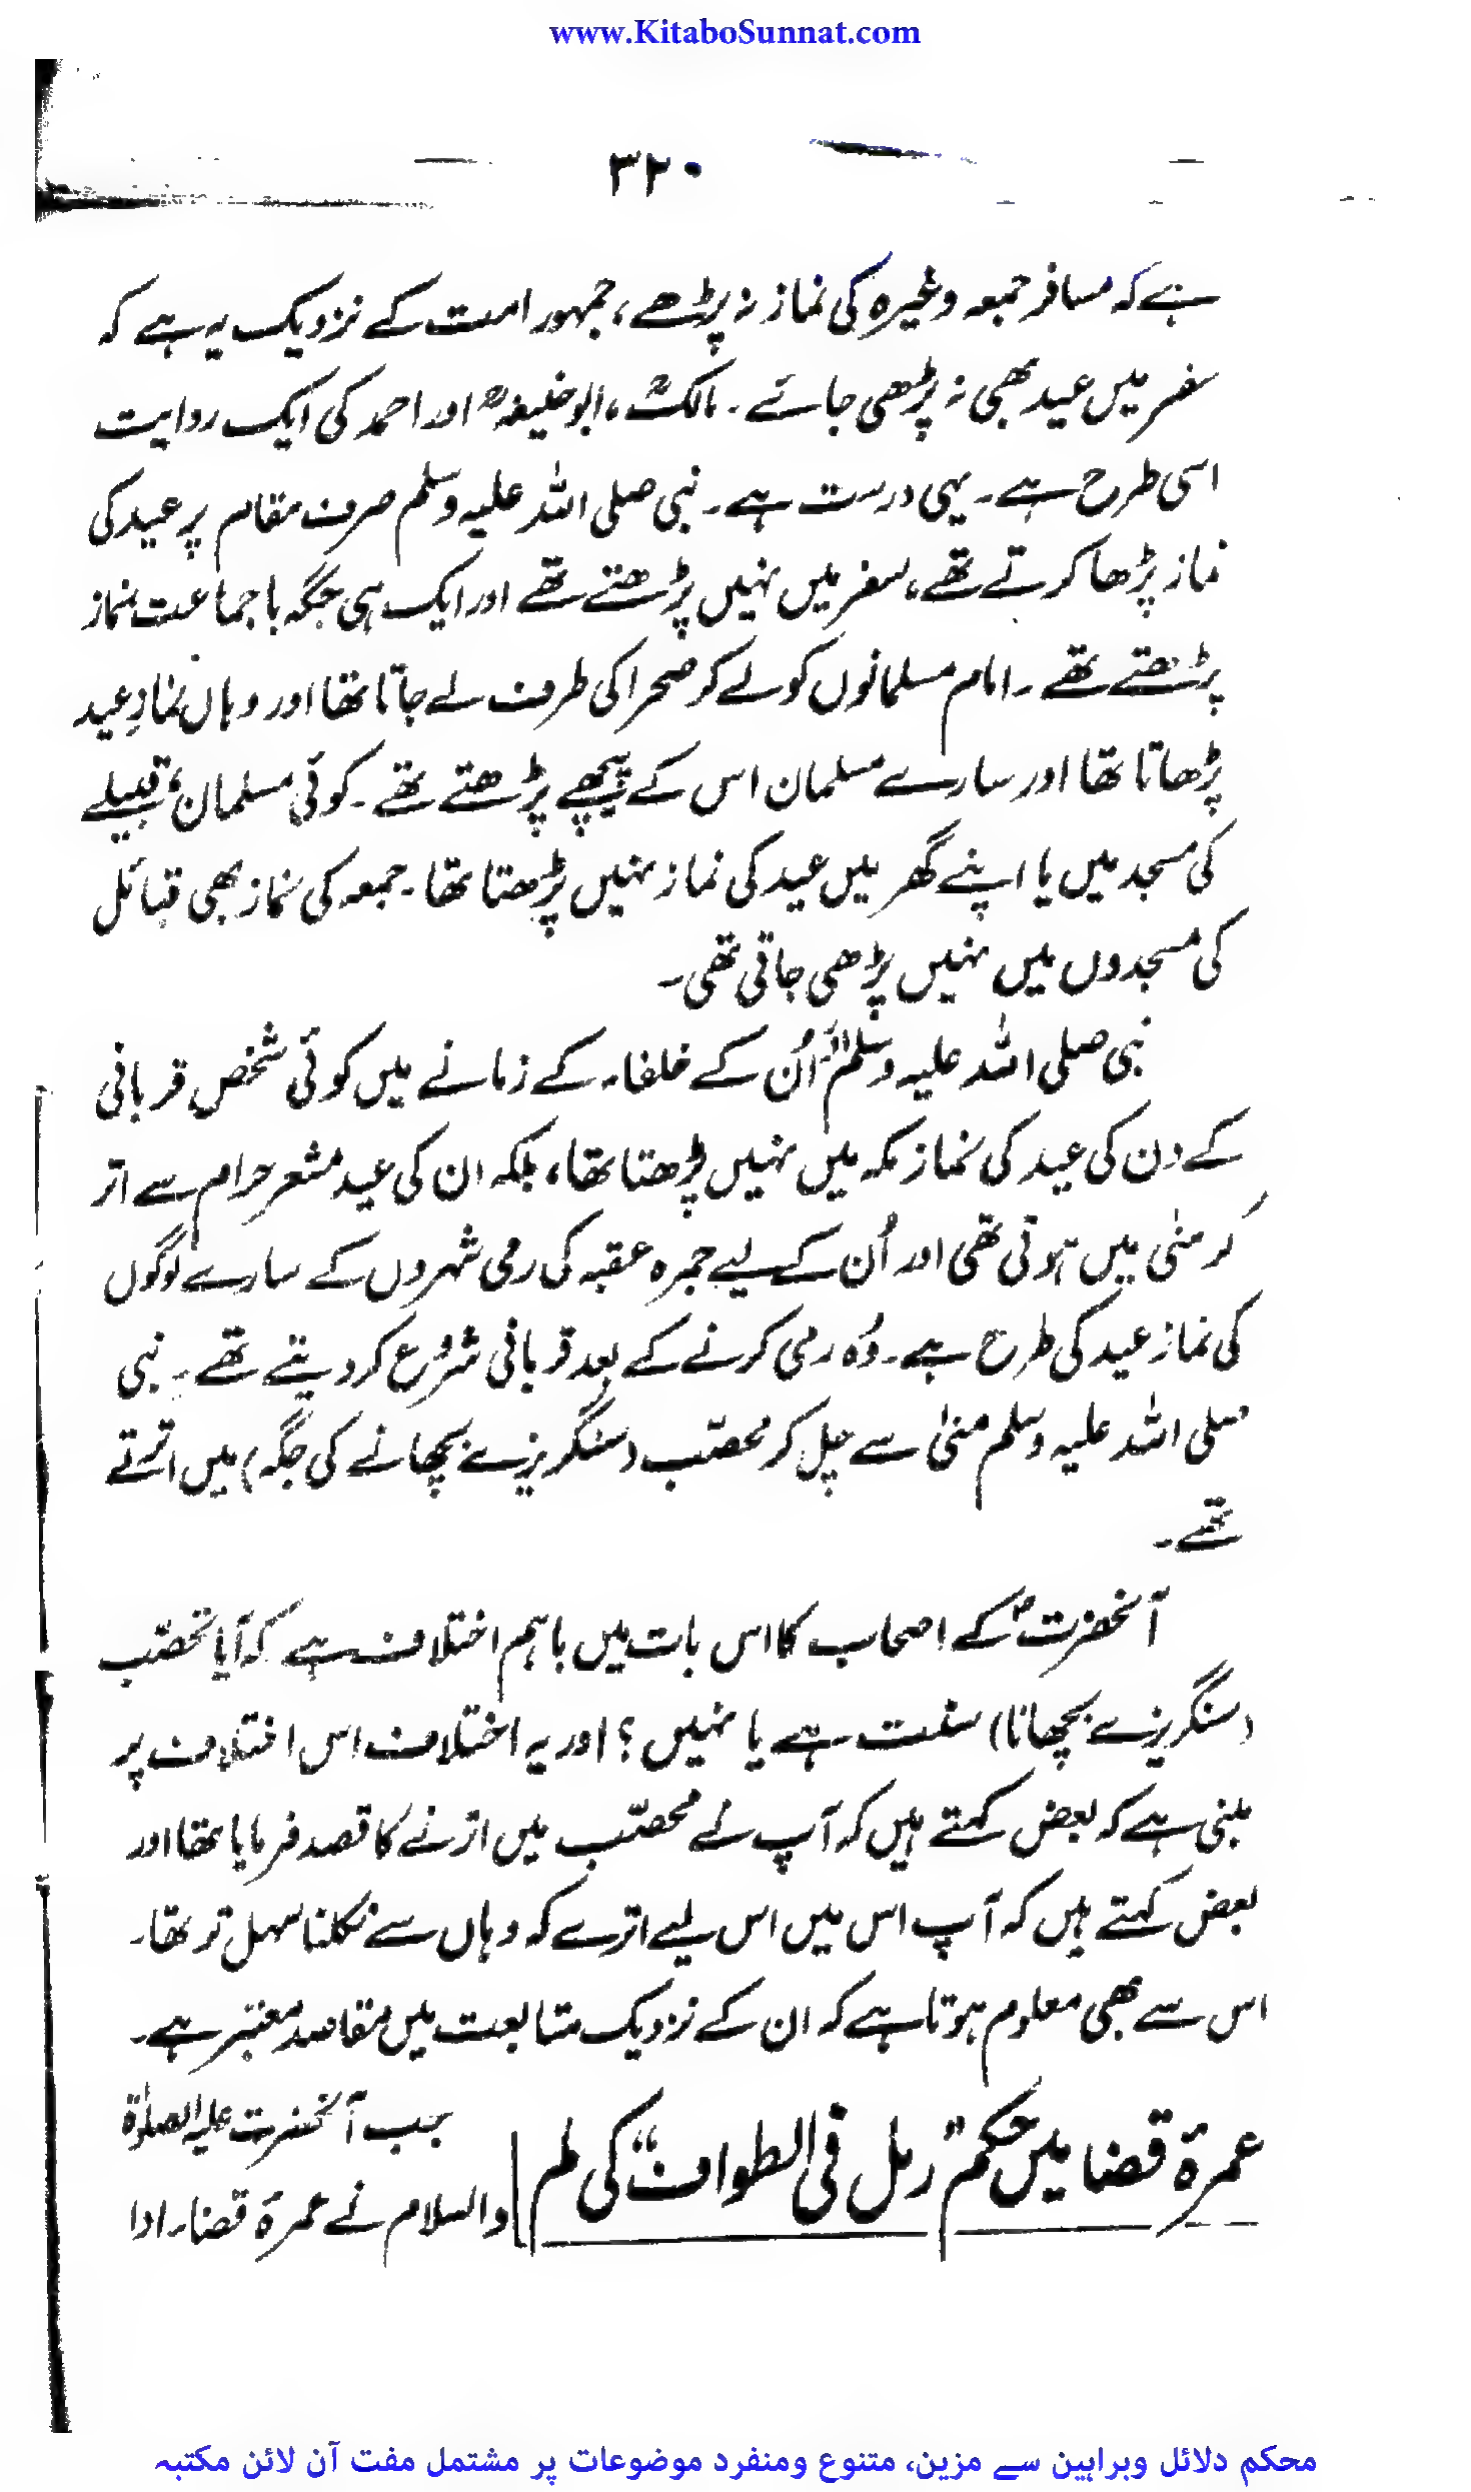 www.KitaboSunnat.com
۳۲۰
ہے کہ مسافر جمعہ وغیرہ کی نماز نہ پڑھے، جمہور امت کے نزدیک یہ ہے کہ
سفر میں عید بھی نہ پڑھی جائے ۔ مالکؒ، ابوحنیفہؒ اور احمد کی ایک روایت
اسی طرح ہے ۔ یہی درست ہے ۔ نبی صلی اللہ علیہ وسلم صرف مقام پر عید کی
نماز پڑھا کرتے تھے، سفر میں نہیں پڑھتے تھے اور ایک ہی جگہ باجماعت نماز
پڑھتے تھے ۔ امام مسلمانوں کو لے کر صحرا کی طرف لے جاتا تھا اور وہاں نمازِ عید
پڑھاتا تھا اور سارے مسلمان اس کے پیچھے پڑھتے تھے ۔ کوئی مسلمان، قبیلے
کی مسجد میں یا اپنے گھر میں عید کی نماز نہیں پڑھتا تھا ۔ جمعہ کی نماز بھی قبائل
کی مسجدوں میں نہیں پڑھی جاتی تھی ۔
نبی صلی اللہ علیہ وسلم اور اُن کے خلفاء کے زمانے میں کوئی شخص قربانی
کے دن کی عید کی نماز مکہ میں نہیں پڑھتا تھا، بلکہ ان کی عید مشعر حرام سے اتر
کر منٰی میں ہوتی تھی اور اُن کے لیے جمرہ عقبہ کی رمی شہروں کے سارے لوگوں
کی نماز عید کی طرح ہے ۔ وُہ رمی کرنے کے بعد قربانی شروع کر دیتے تھے ۔ نبی
صلی اللہ علیہ وسلم منٰی سے چل کر محصّب (سنگریزے بچھانے کی جگہ) میں اترتے
تھے ۔
آنحضرتؐ کے اصحاب کا اس بات میں باہم اختلاف ہے کہ آیا تحصّب
(سنگریزے بچھانا) سنت ہے یا نہیں؟ اور یہ اختلاف اس اختلاف پر
مبنی ہے کہ بعض کہتے ہیں کہ آپ نے محصّب میں اترنے کا قصد فرمایا تھا اور
بعض کہتے ہیں کہ آپ اس میں اس لیے اترے کہ وہاں سے نکلنا سہل تر تھا ۔
اس سے بھی معلوم ہوتا ہے کہ ان کے نزدیک متابعت میں مقاصد معتبر ہے ۔
عمرۃ قضا میں حکم "رمل فی الطواف" کی لم
جب آنحضرت علیہ الصلوٰۃ
والسلام نے عمرۃ قضاء ادا
محکم دلائل وبراہین سے مزین، متنوع ومنفرد موضوعات پر مشتمل مفت آن لائن مکتبہ